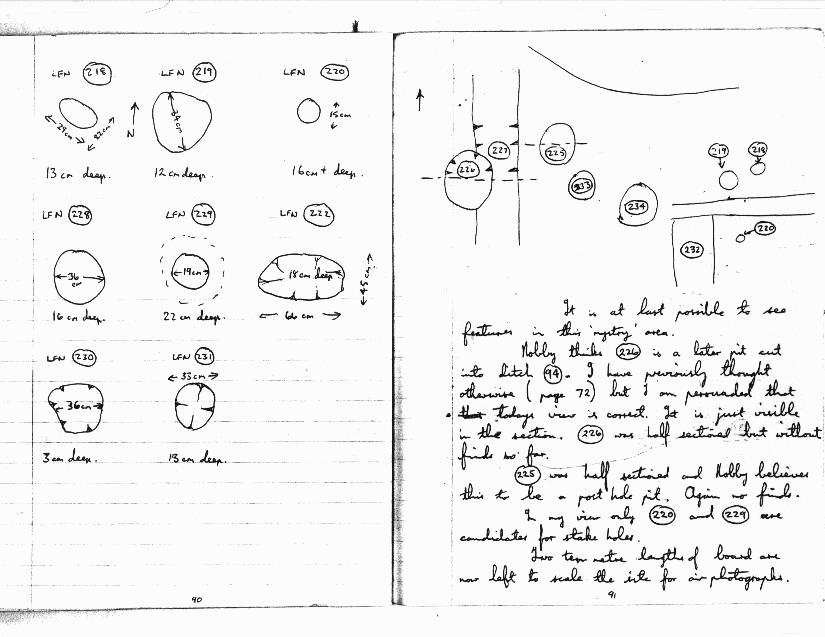 LFN 218
LFN 219
LFN 220
29cm
22cm
N
34cm
15cm
13 cm deep.
12cm deep.
16cm + deep.
LFN 228
LFN 229
LFN 222
36 cm
19cm
18cm deep
45cm
16cm deep.
22cm deep.
66 cm
LFN 230
LFN 231
33cm
36cm
3cm deep.
13cm deep.
90
227
225
226
233
234
219
218
220
232
It is at last possible to see
features in this 'mystry' area.
Nobby thinks 226 is a later pit cut
into ditch 94. I have previously thought
otherwise (page 72) but I am persuaded that
todays view is correct. It is just visible
in the section. 226 was half sectioned but without
finds so far.
225 was half sectioned and Nobby believes
this to be a post hole pit. Again no finds.
In my view only 220 and 229 are
candidates for stake holes.
Two ten metre lengths of board are
now left to scale the site for air photographs.
91